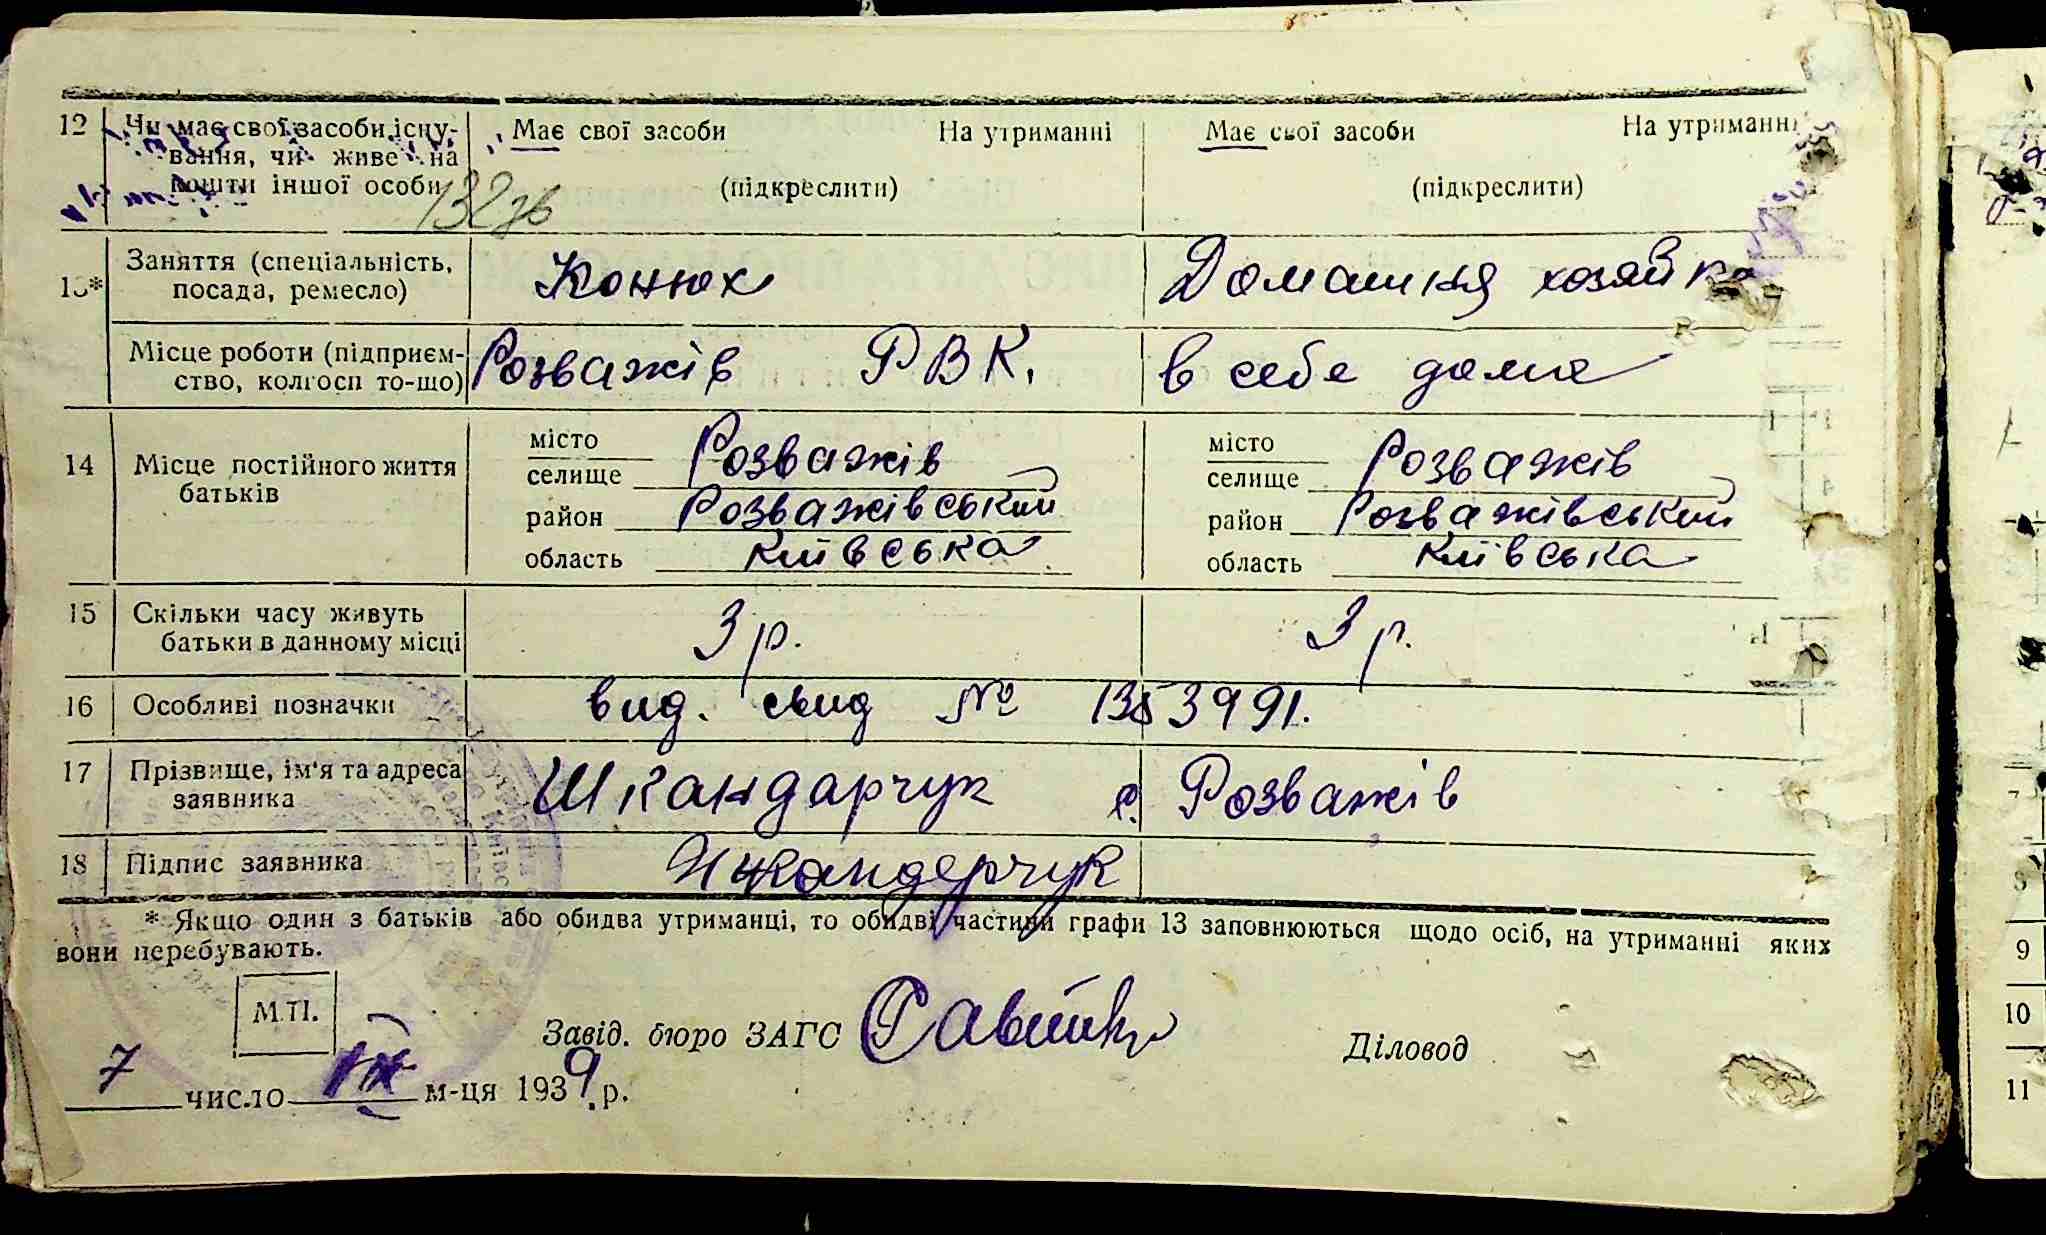 12 Чи має свої засоби існу- Має свої засоби На утриманні Має свої засоби На утриманні
вання, чи живе на
кошти іншої особи (підкреслити) (підкреслити)
132зв
13* Заняття (спеціальність, посада, ремесло) Конюх Домашня хозяйка
Місце роботи (підприєм- Розважів РВК. в себе дома
ство, колгосп то-що)
місто місто
14 Місце постійного життя селище Розважів селище Розважів
батьків район Розважівський район Розважівський
область київська область київська
15 Скільки часу живуть 3 р. 3 р.
батьки в данному місці
16 Особливі позначки вид. свид № 1353991.
17 Прізвище, ім'я та адреса Шкандарчук с. Розважів
заявника
18 Підпис заявника Шкандерчук
* Якщо один з батьків або обидва утриманці, то обидві частини графи 13 заповнюються щодо осіб, на утриманні яких
вони перебувають.
М.П.
Завід. бюро ЗАГС Діловод
7 число м-ця 1939 р.
9
10
11